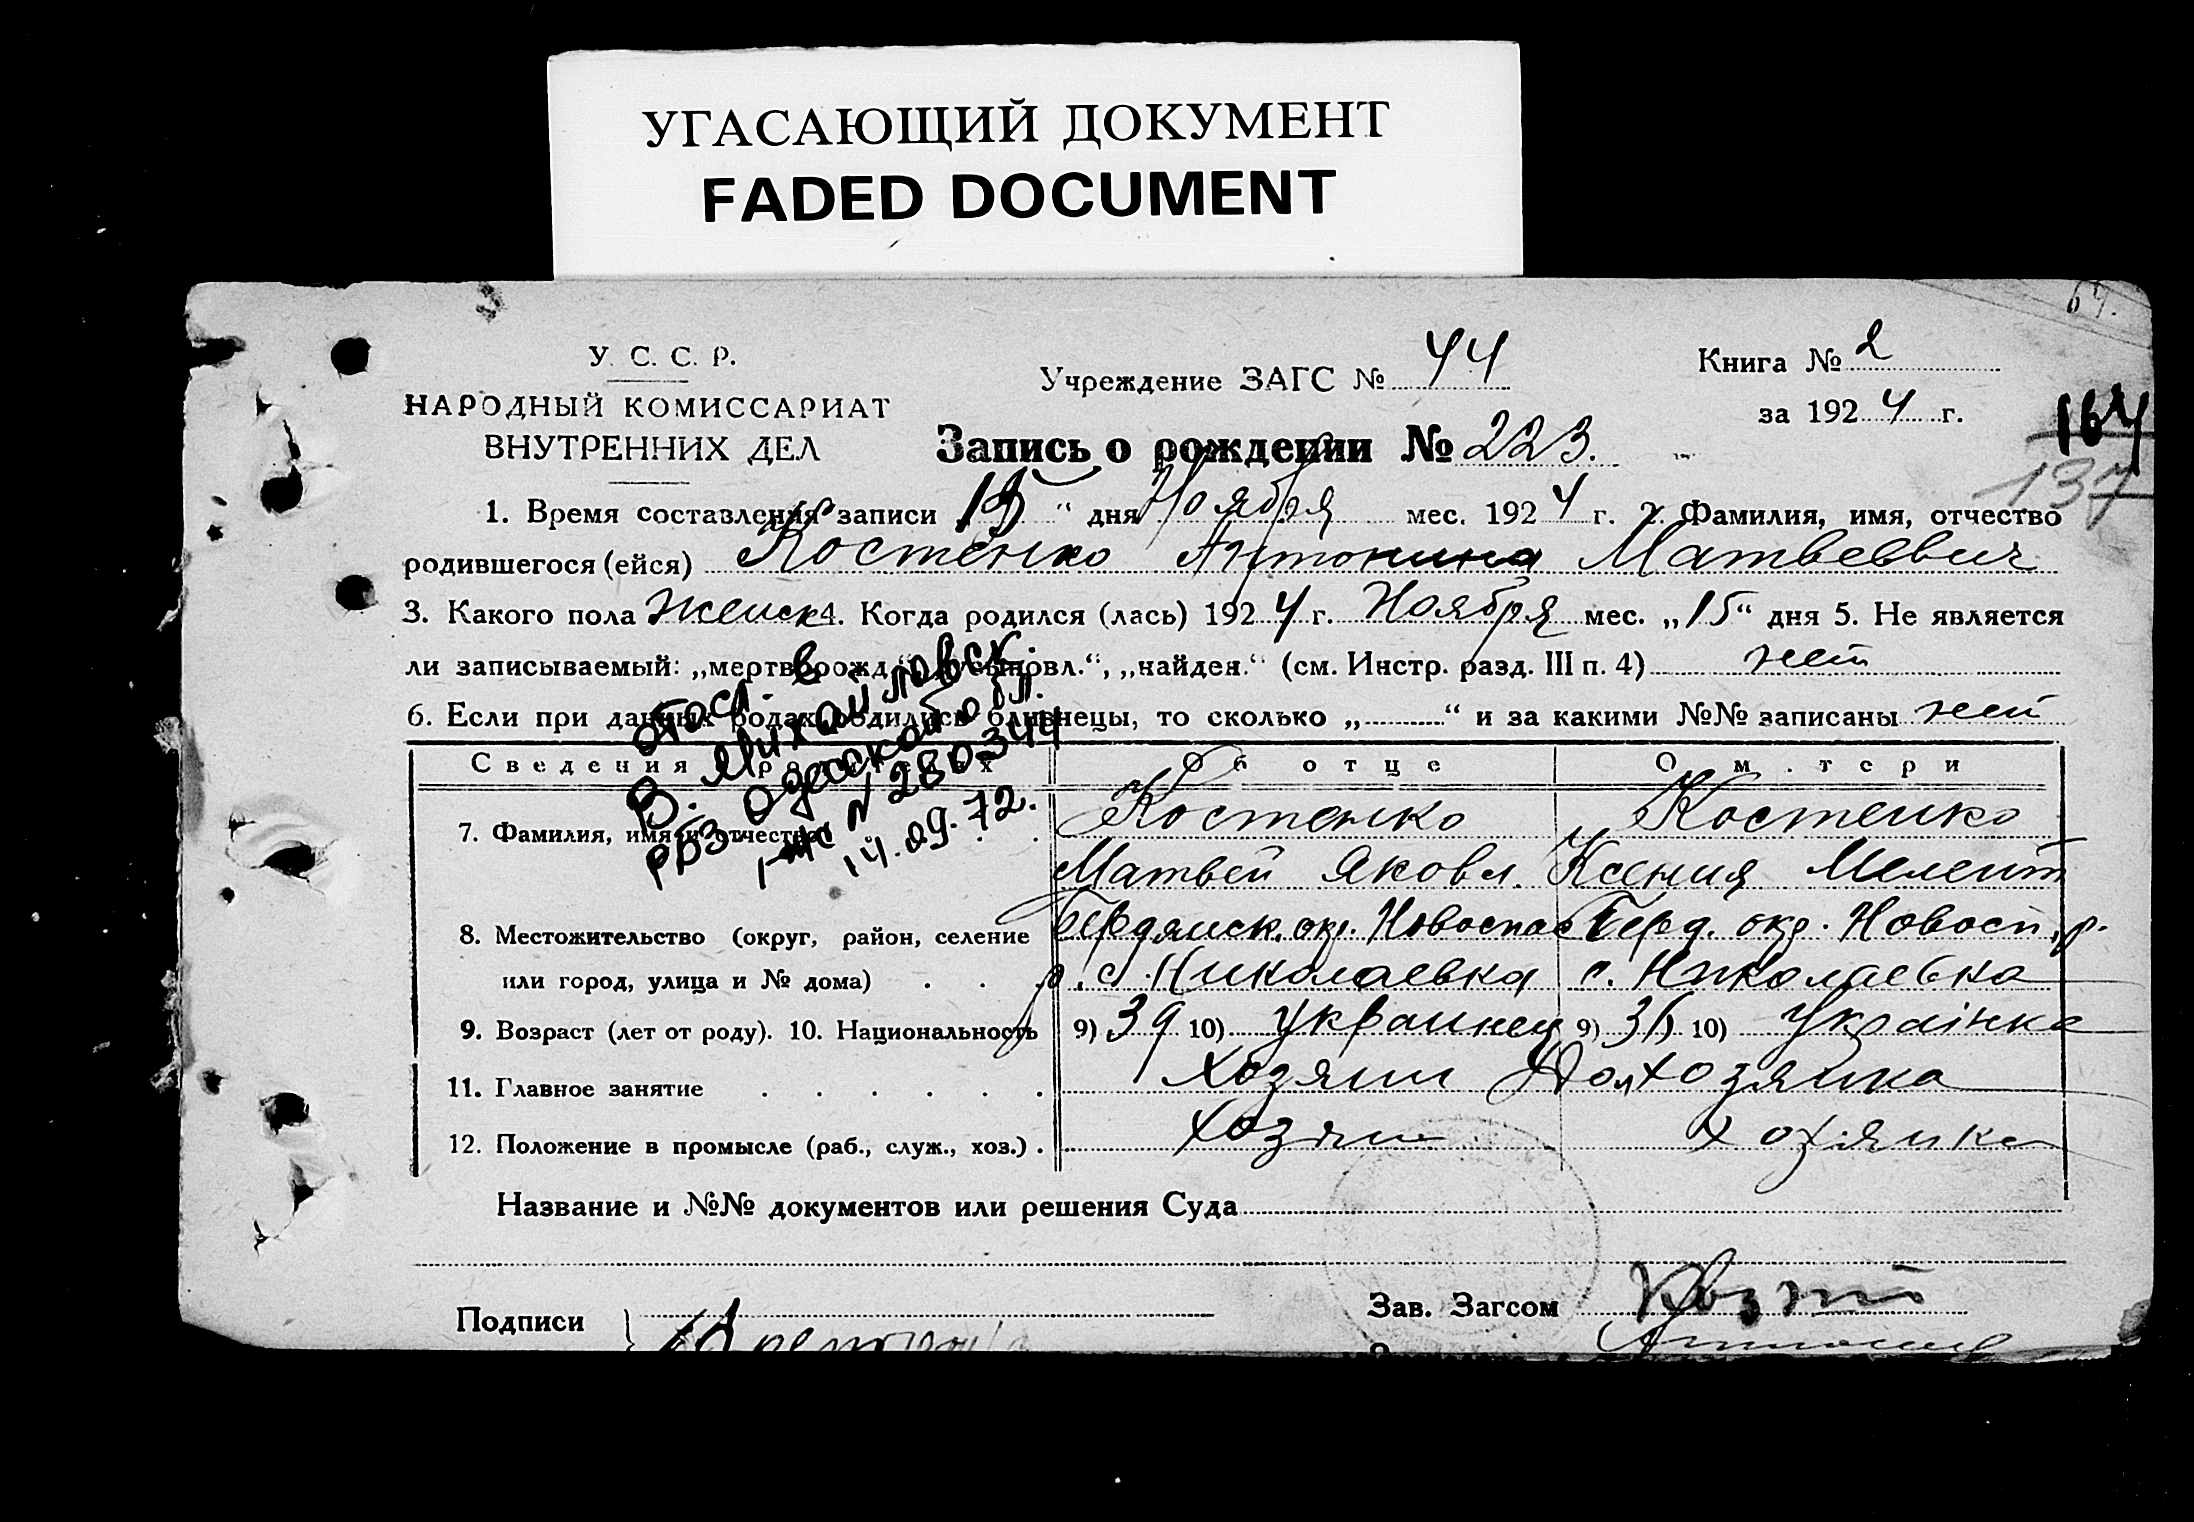 УГАСАЮЩИЙ ДОКУМЕНТ
FADED DOCUMENT
64.
У. С. С. Р.
НАРОДНЫЙ КОМИССАРИАТ
ВНУТРЕННИХ ДЕЛ
Учреждение ЗАГС № 44
Книга № 2
за 1924 г.
164
137
Запись о рождении № 223.
1. Время составления записи 15 " дня Ноября мес. 1924 г. 2. Фамилия, имя, отчество
родившегося (ейся) Костенко Антонина Матвеевич
3. Какого пола женск 4. Когда родился (лась) 1924 г. Ноября мес. „15" дня 5. Не является
ли записываемый: „мертворожд.", „подкиновл.", „найден." (см. Инстр. разд. III п. 4) нет
6. Если при данных родах родились близнецы, то сколько „..........." и за какими №№ записаны нет
в
В. Михайловск.
Одесской обл.
№ 280344
14.09.72.
Сведения о родителях Об отце О матери
7. Фамилия, имя и отчество Костенко Костенко
Матвей Яковл. Ксения Мелент
8. Местожительство (округ, район, селение Бердянск. окр. Новоспас Берд. окр. Новосп. р.
или город, улица и № дома) р. с. Николаевка с. Николаевка
9. Возраст (лет от роду). 10. Национальность 9) 39 10) Украинец 9) 10) Украінка
11. Главное занятие Хозяин Домхозяйка
12. Положение в промысле (раб., служ., хоз.) Хозяин хозяйка
Название и №№ документов или решения Суда
Подписи
Зав. Загсом